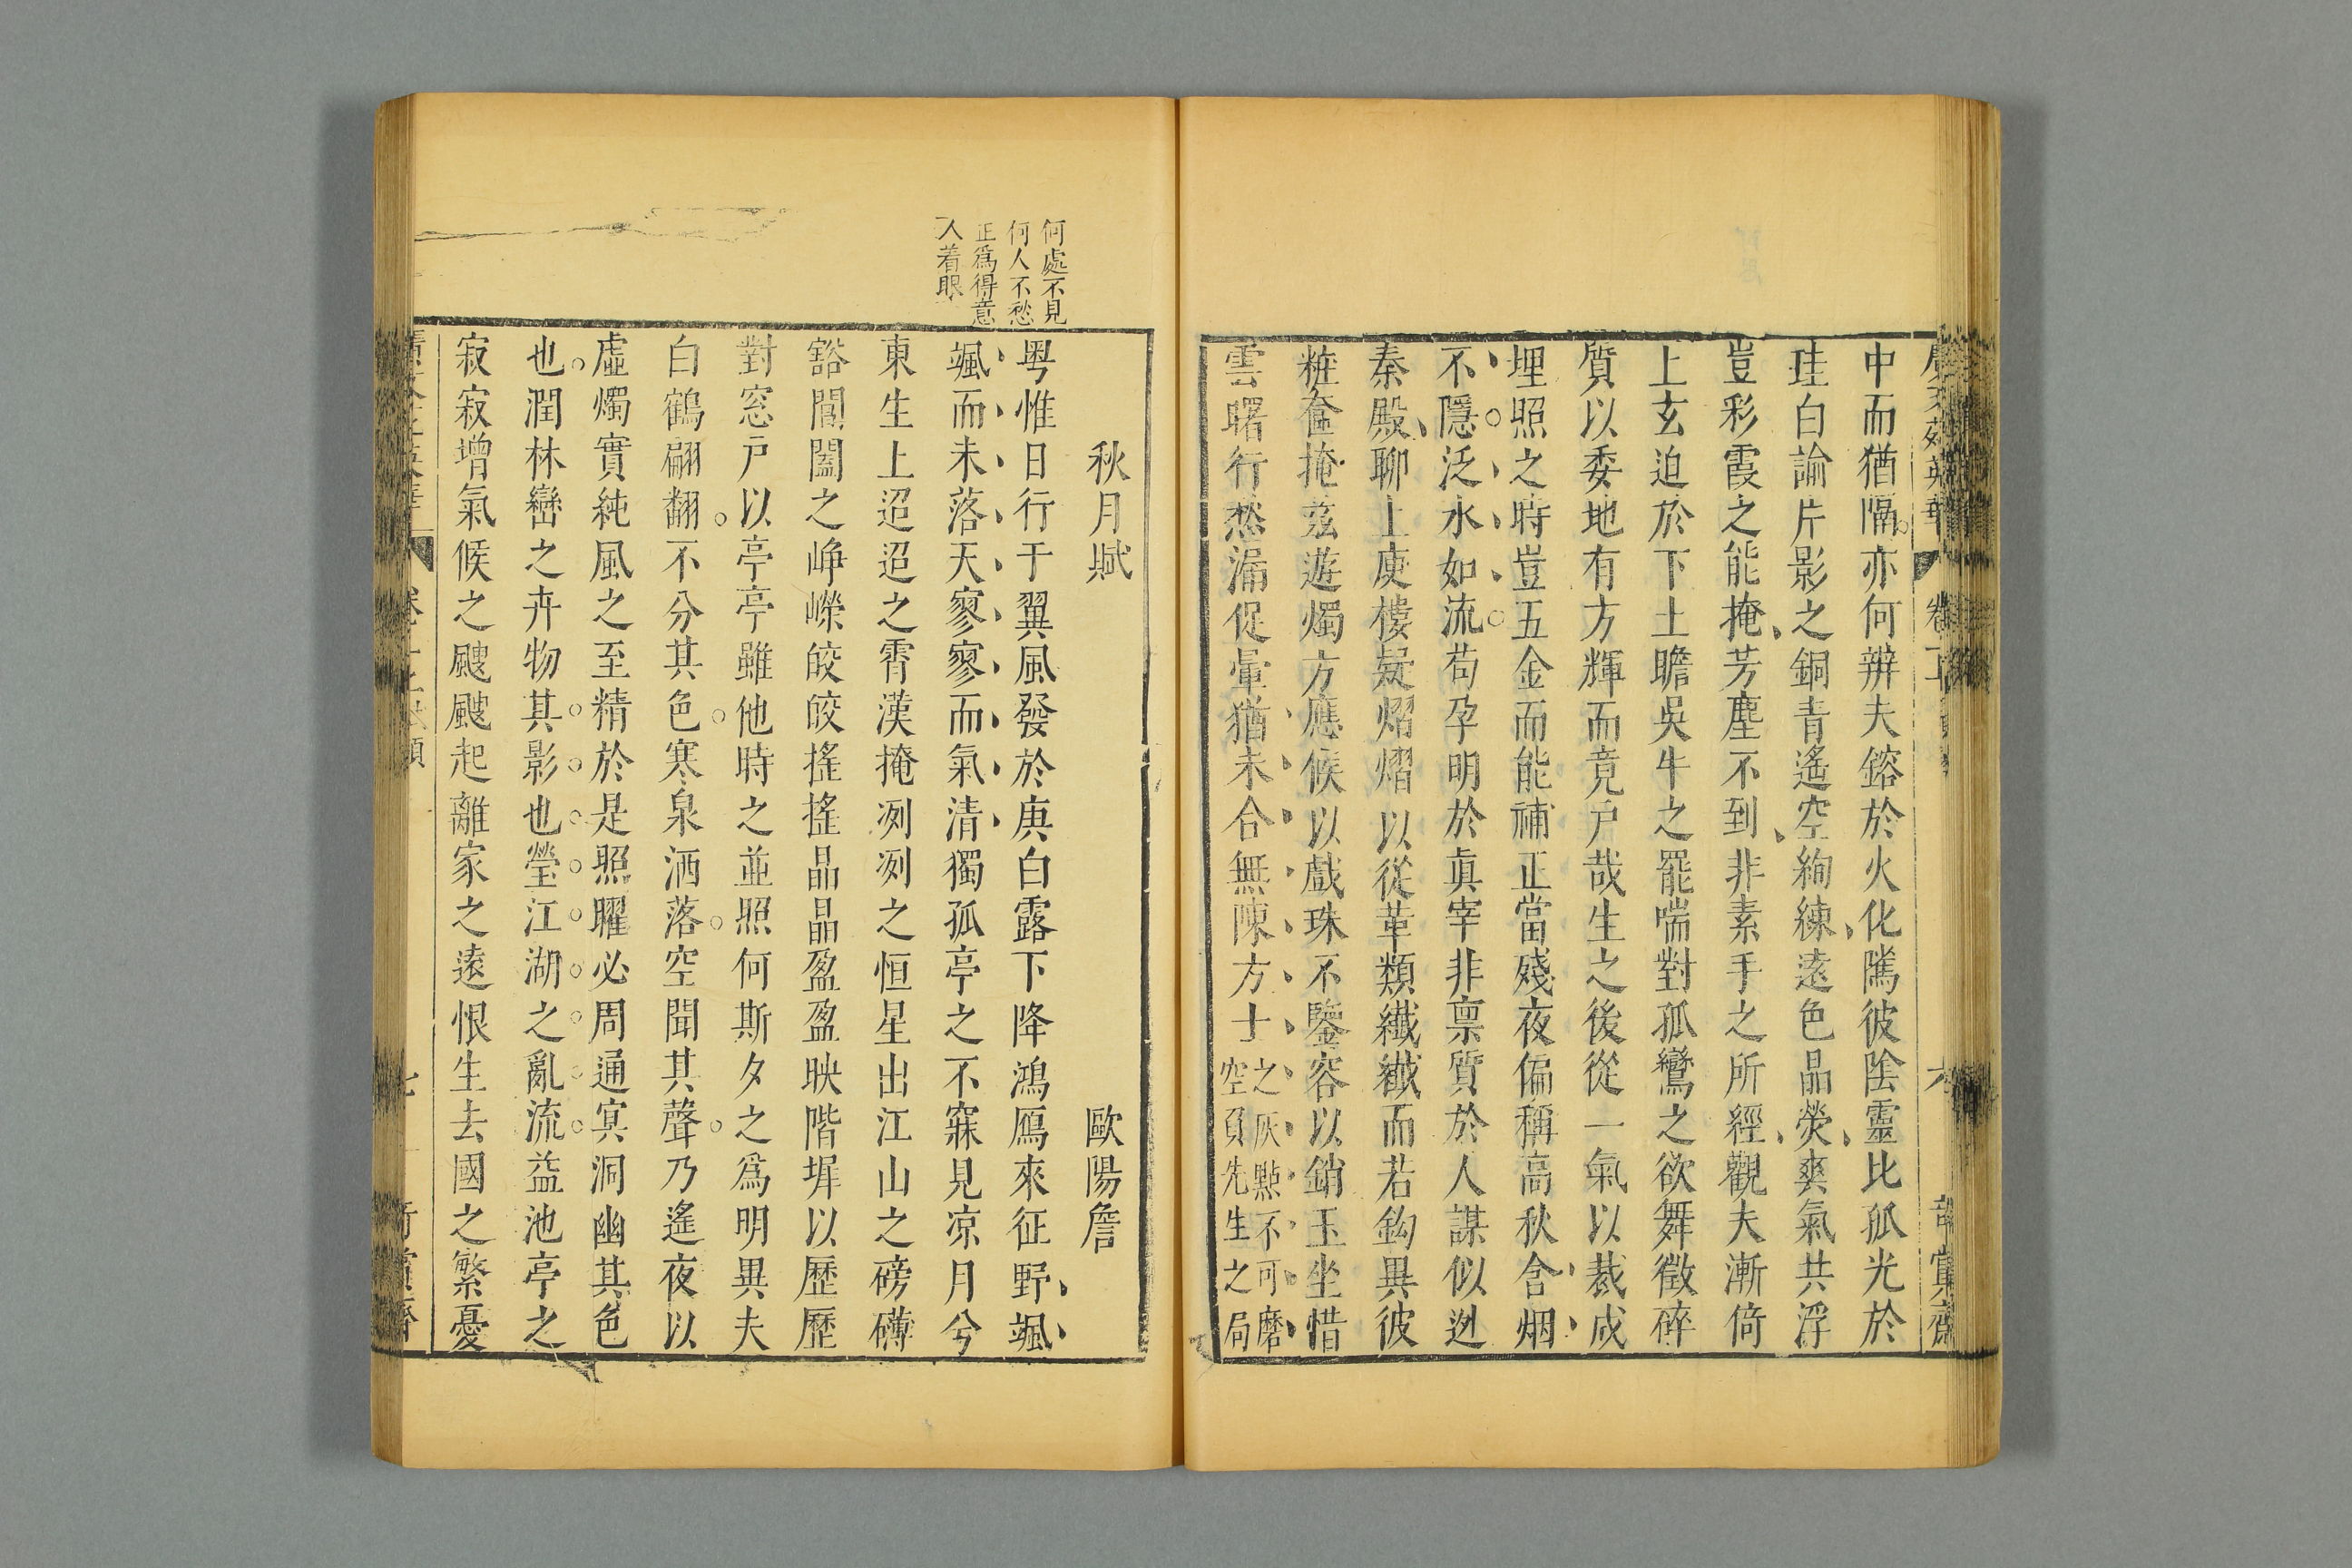 中而猶隔亦何辨夫鎔於火化隲彼陰靈比孤光於
珪白論片影之銅青遙空絢練遠色晶熒爽氣共浮
豈彩霞之能掩芳塵不到非素手之所經觀夫漸倚
上玄迫於下土瞻吳牛之罷喘對孤鸞之欲舞徵碎
質以委地有方輝而竟戶哉生之後從一氣以裁成
埋照之時豈五金而能補正當殘夜偏稱高秋含烟
不隱泛水如流苟孕明於眞宰非禀質於人謀似迯
秦殿聊上庾樓疑熠熠以從革類纖纖而若鈎異彼
粧奩掩茲遊燭方應候以戲珠不鑒容以銷玉坐惜
雲曙行愁漏促暈猶未合無陳方士之灰點不可磨
空負先生之局
何處不見
何人不愁
正爲得意
人着眼
秋月賦 歐陽詹
粤惟日行于翼風發於庚白露下降鴻鴈來征野颯
颯而未落天寥寥而氣清獨孤亭之不寐見凉月兮
東生上迢迢之霄漢掩洌洌之恒星出江山之磅礴
豁閶闔之崢嶸皎皎搖搖晶晶盈盈映階墀以歷歷
對窓戶以亭亭雖他時之並照何斯夕之爲明異夫
白鶴翩翻不分其色寒泉洒落空聞其聲乃遙夜以
虛燭實純風之至精於是照曜必周通冥洞幽其色
也潤林巒之卉物其影也瑩江湖之亂流益池亭之
寂寂增氣候之颼颼起離家之遠恨生去國之繁憂